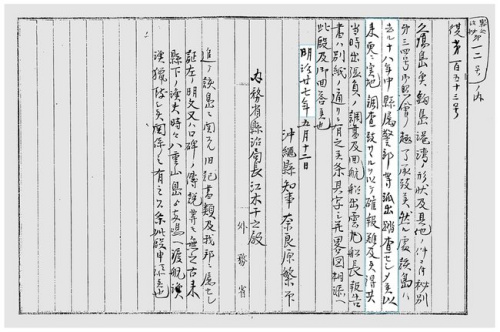 復第百五十三号
久場島魚釣島港湾ノ形状及其他ノ件ニ付秘別
第三四号御照会ノ趣了承致候然ル処該島ハ
去ル十八年中県属警部等派出踏査セシメ候以
来更ニ実地調査致サヽルヲ以テ確報難及候得共
当時出張員ノ調書及回航船出雲丸船長報告
書ハ別紙ノ通リニ有之候条其写ニ略図相添ヘ
此段及御回答候也
明治廿七年五月十二日
沖縄県知事奈良原繁
内務省県治局長江木干之殿
外務省
追テ該島ニ関スル旧記書類及我邦ニ属セシ
証左ノ明文又ハ口碑ノ伝説等モ無之古来
県下ノ漁夫時々八重山島ヨリ両島ヘ渡航漁
漁猟致シ候関係ノミ有之候条此段申添候也